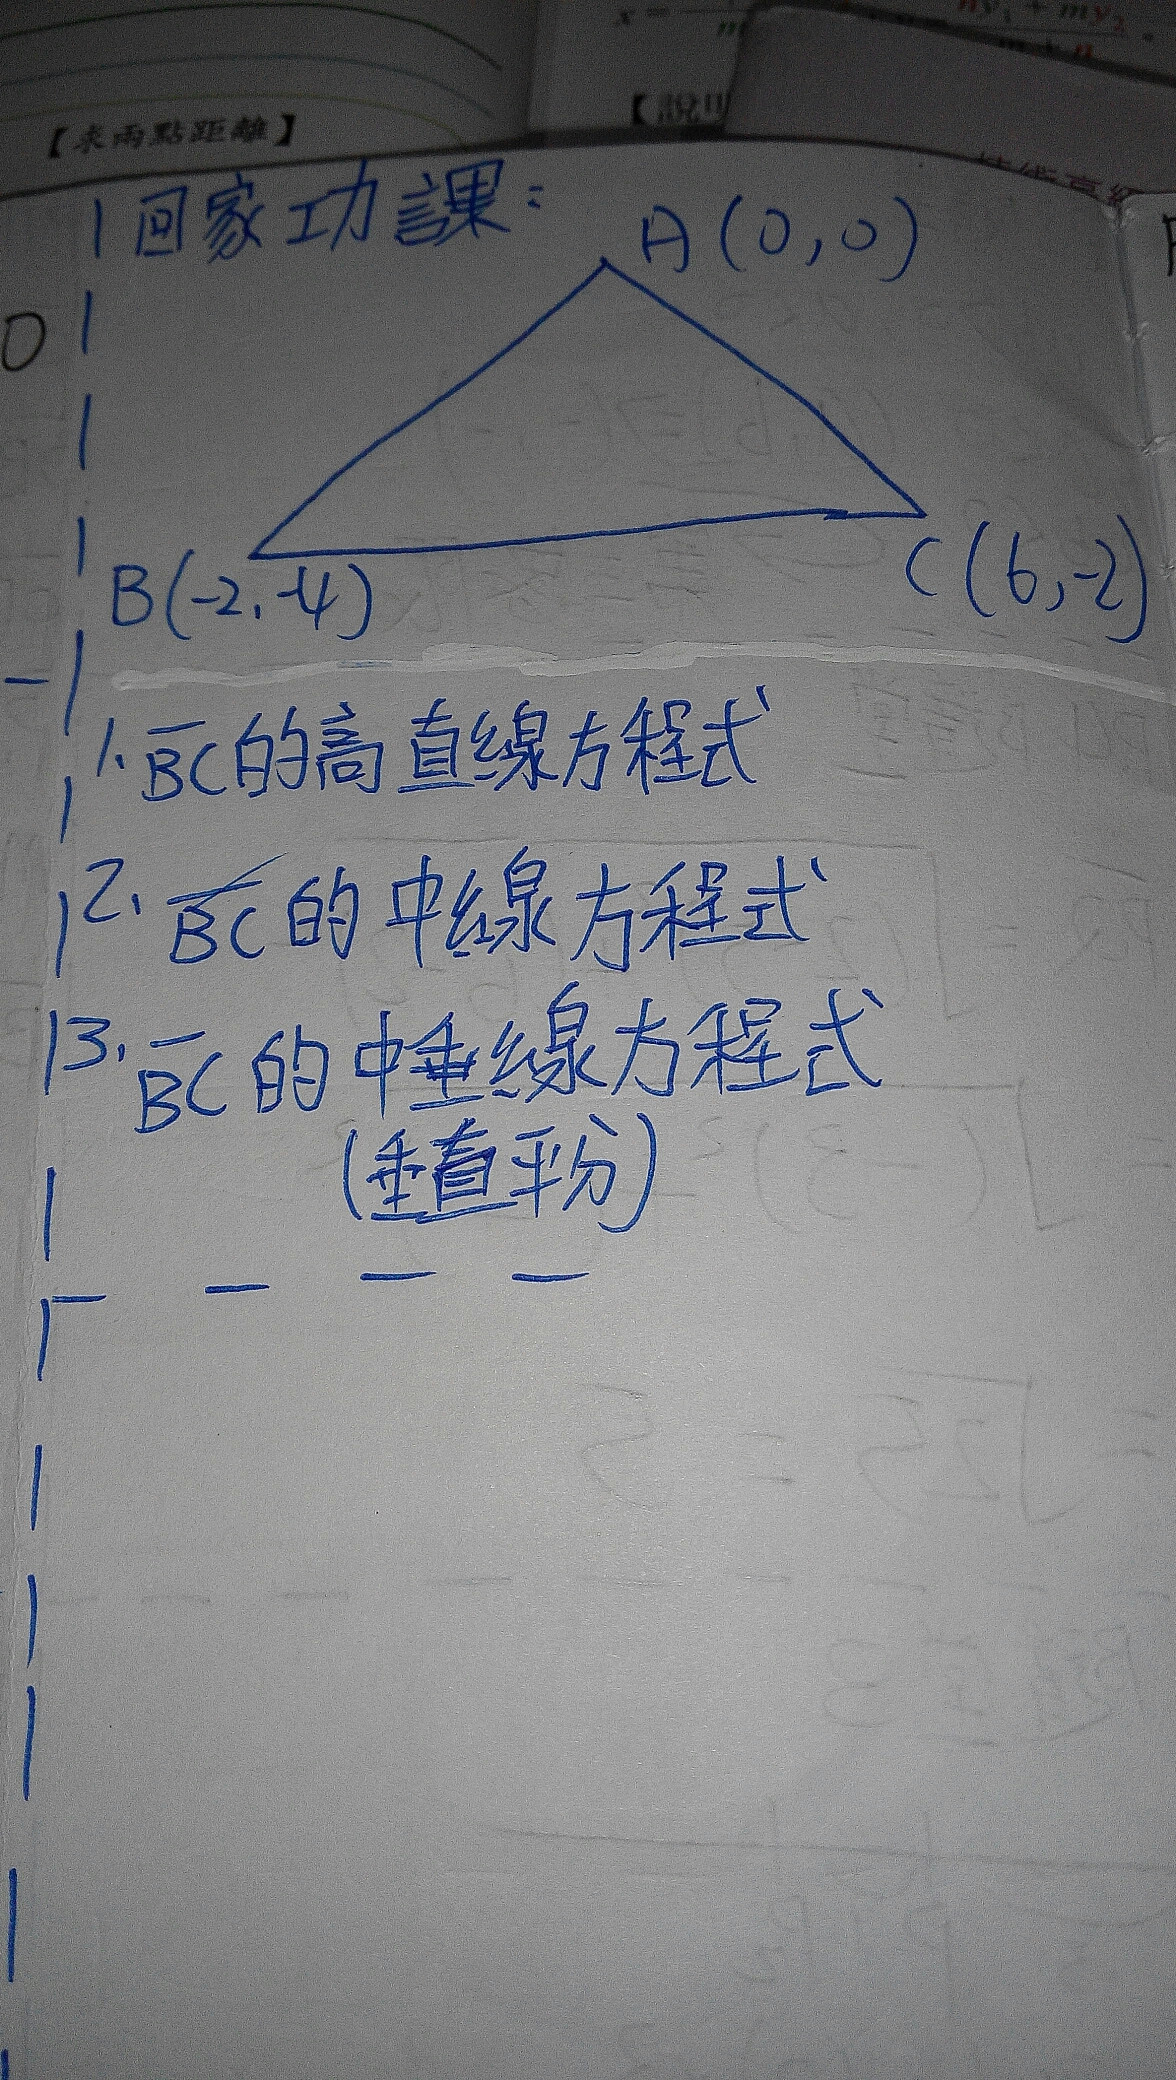 【求兩點距離】
【說明
回家功課:
A(0,0)
B(-2,-4)
C(6,-2)
1. BC的高直線方程式
2. BC的中線方程式
3. BC的中垂線方程式
(垂直平分)